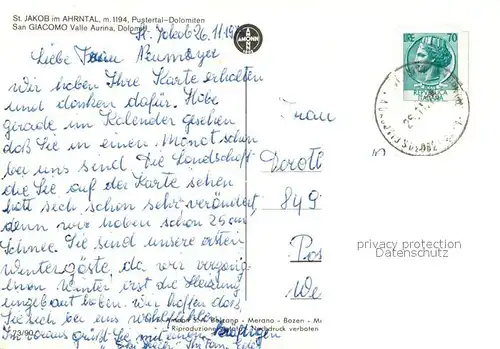 St. JAKOB im AHRNTAL, m. 1194, Pustertal-Dolomiten
San GIACOMO Valle Aurina, Dolomiti
St. Jakob 26.11.19
AMONN
LIRE 70
REPUBBLICA ITALIANA
Liebe Frau Neumayer
wir haben Ihre Karte erhalten
und danken dafür. Habe
gerade im Kalender gesehen
daß Sie in einen Monat schon
bei uns sind. Die Landschaft
die Sie auf der Karte sehen
hatt sich schon sehr verändert
denn wir haben schon 25 cm
Schnee. Sie sind unsere ersten
Wintergäste, da wir vergang-
enen Winter erst die Heizung
eingebaut haben. Wir hoffen daß
Sie sich bei uns wohlfühlen
Im voraus grüßt Sie mit einen kräftigen
Frau
Doroth
849
Pos
We
privacy protection
Datenschutz
Bolzano - Merano - Bozen - M
Riproduzione Nachdruck verboten
73/90